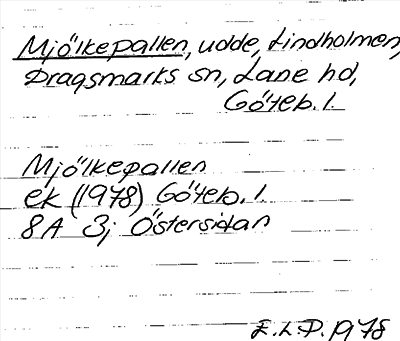 Mjölkepallen, udde, Lindholmen,
Dragsmarks sn, Lane hd,
Göteb. l.
Mjölkepallen
ek (1978) Göteb. l.
8A 3j Östersidan
E.L.P. 1978